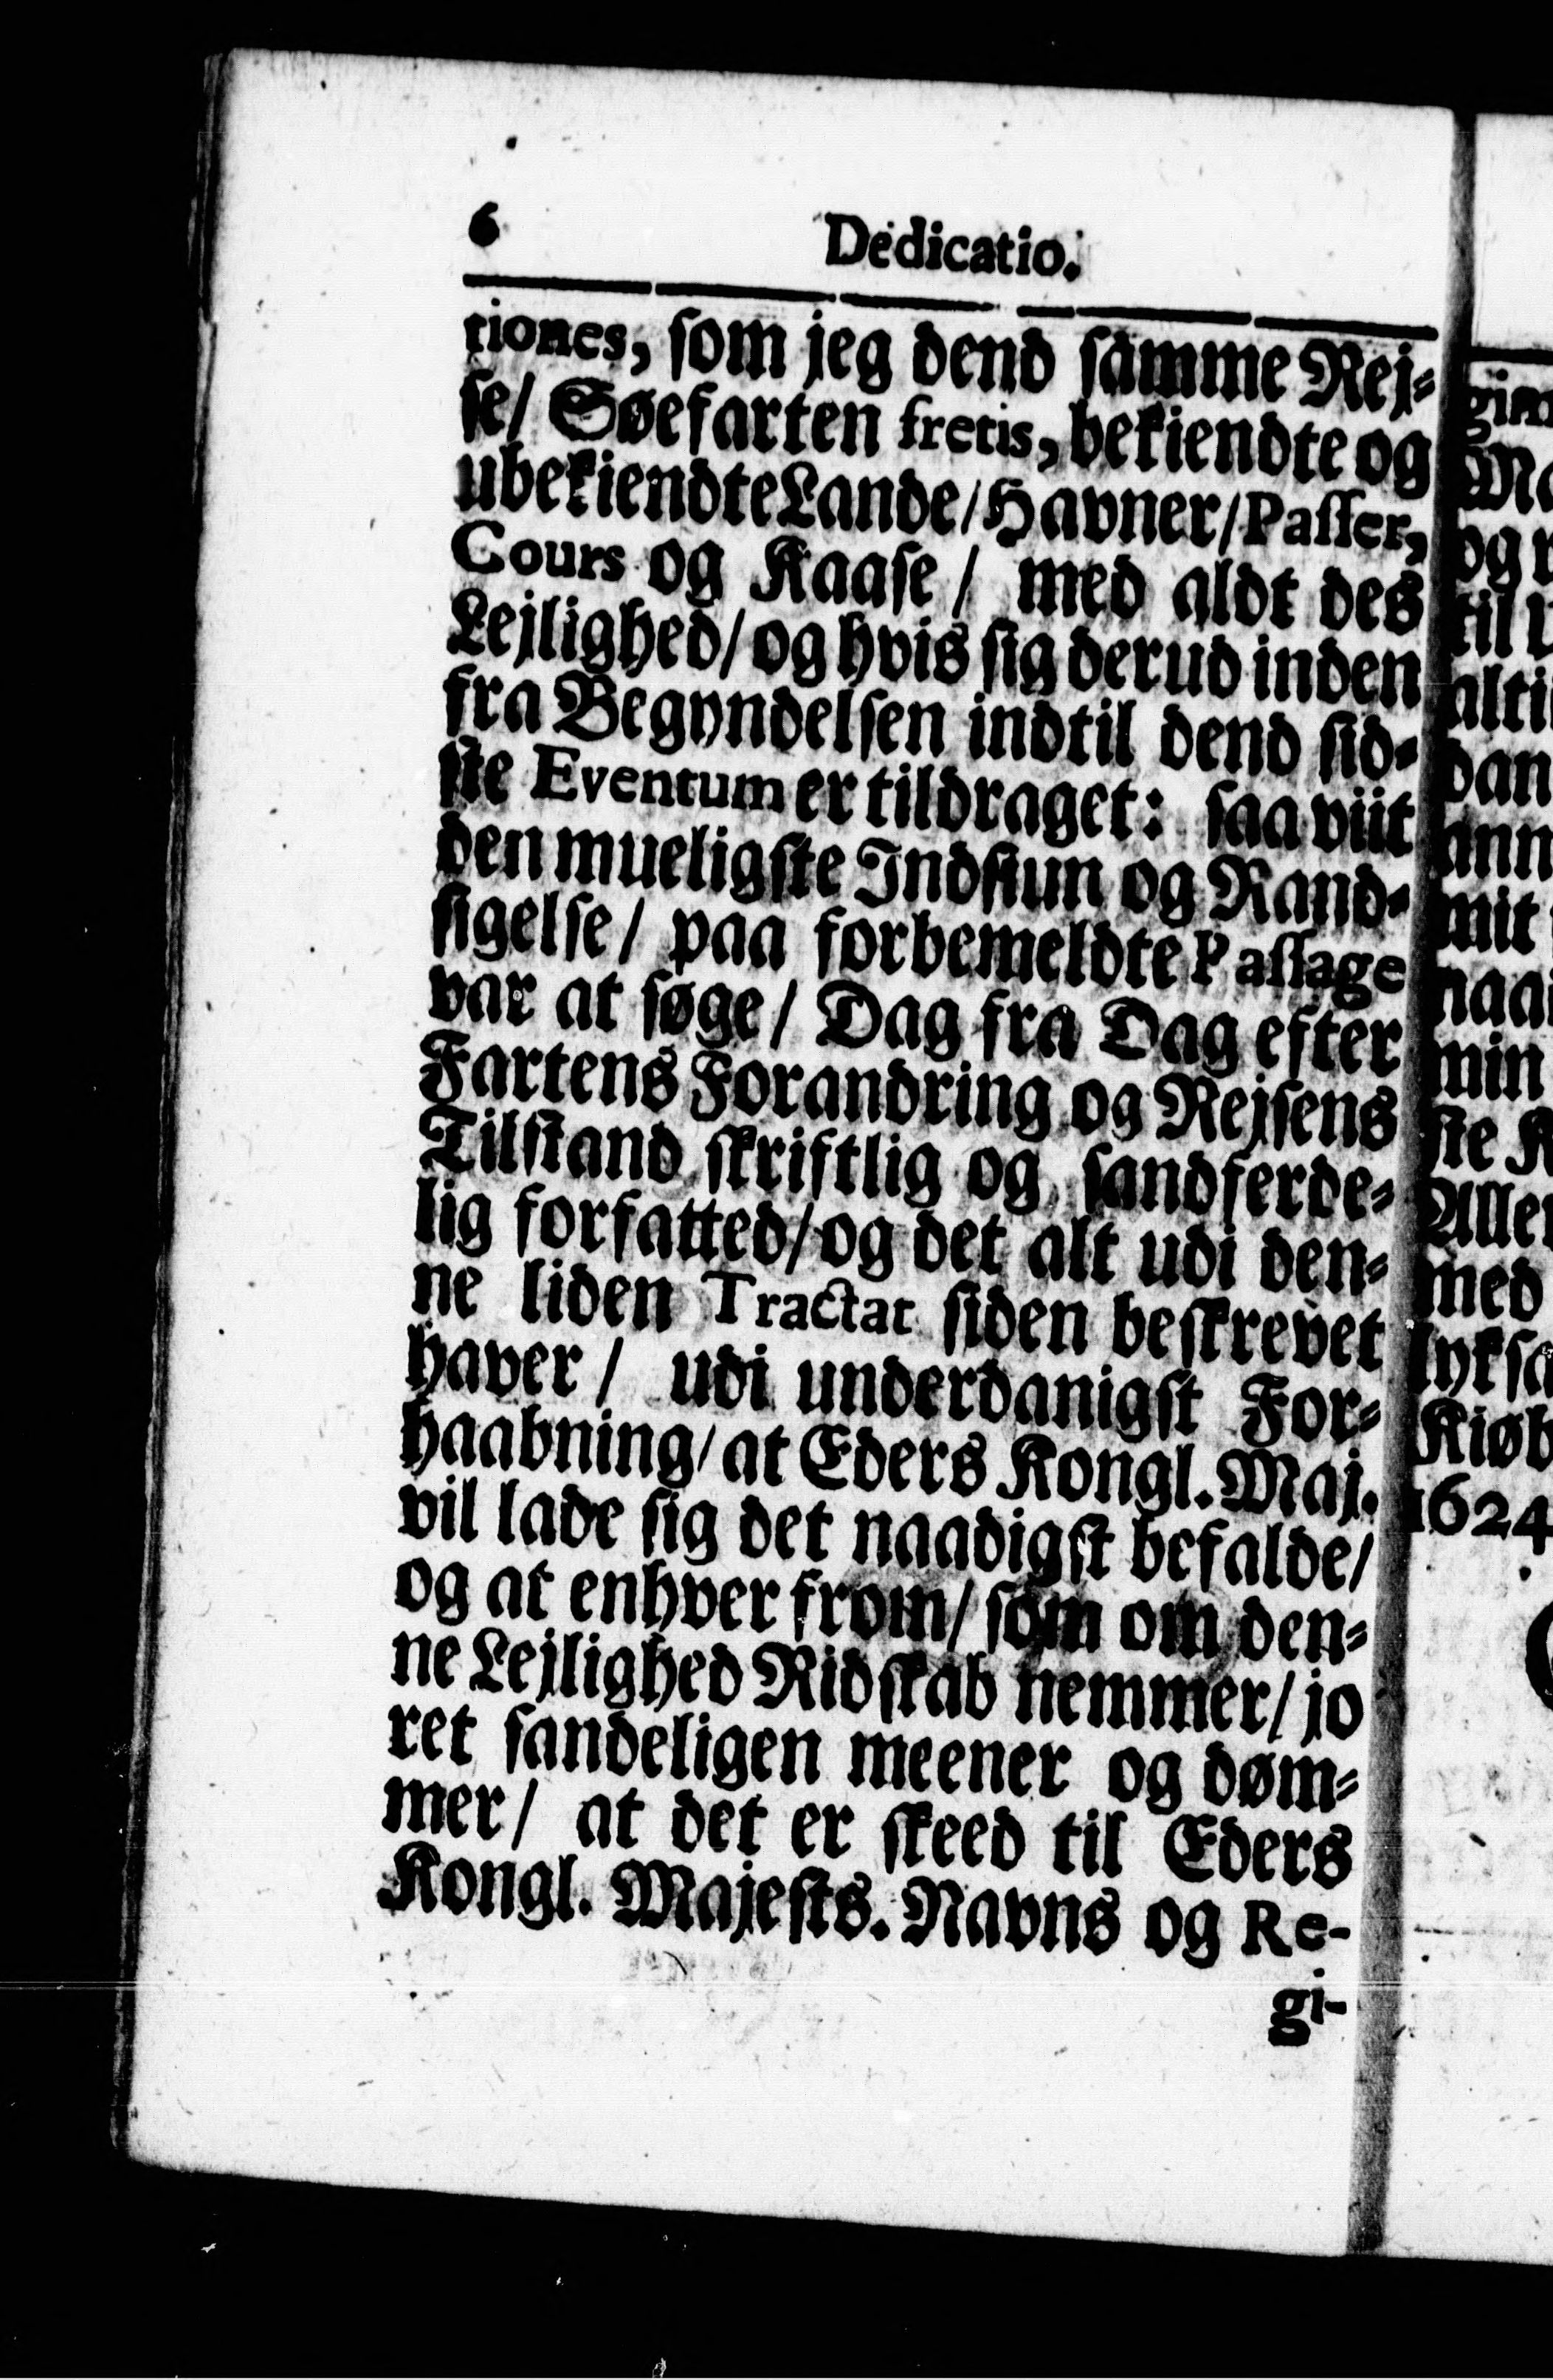 6 Dedicatio.
tiones, som jeg dend samme Rej-
se/ Søefarten fretis, bekiendte og
ubekiendte Lande/ Havner/ Passer,
Cours og Kaase/ med aldt des
Lejlighed/ og hvis sig derud inden
fra Begyndelsen indtil dend sid-
ste Eventum er tildraget: saa viit
den mueligste Indsiun og Rand-
sigelse/ paa forbemeldte Passage
var at søge/ Dag fra Dag efter
Fartens Forandring og Rejsens
Tilstand skriftlig og sandferde-
lig forfatted/ og det alt udi den-
ne liden Tractat siden beskrevet
haver/ udi underdanigst For-
haabning/ at Eders Kongl. Maj.
vil lade sig det naadigst befalde/
og at enhver from/ som om den-
ne Lejlighed Ridskab nemmer/ jo
ret sandeligen meener og døm-
mer/ at det er skeed til Eders
Kongl. Majests. Navns og Re-
gi-
gim
Ma
og
til
alti
dan
ann
mit
naa
min
ste K
Aller
med
lyksa
Kiøb
1624